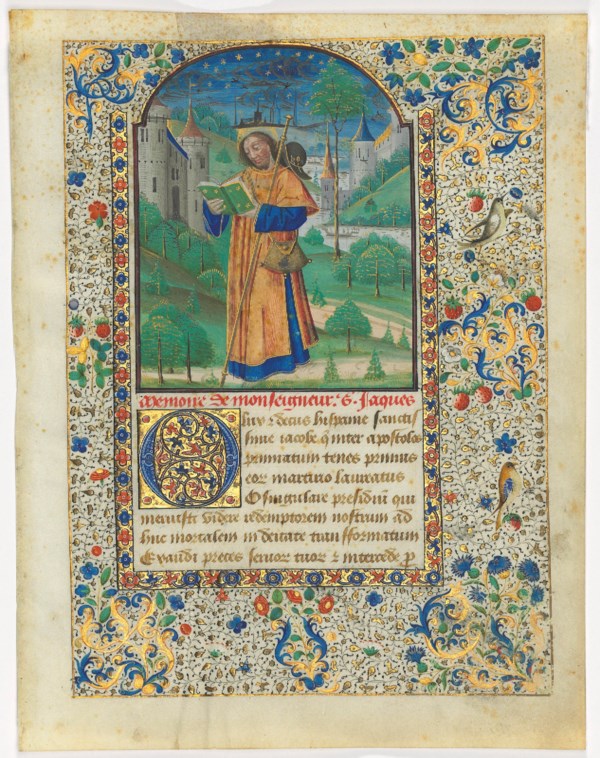 Memoire de monseigneur. S. Jaques
O lux ⁊ decus hispanie sanctis
sime iacobe q inter apostolos
primatum tenes primus
eoꝝ martirio laureatus
O singulare presidiū qui
meruisti videre redemptorem nostrum ad
huc mortalem in deitate transformatum
Exaudi preces seruoꝝ tuoꝝ ⁊ intercede p